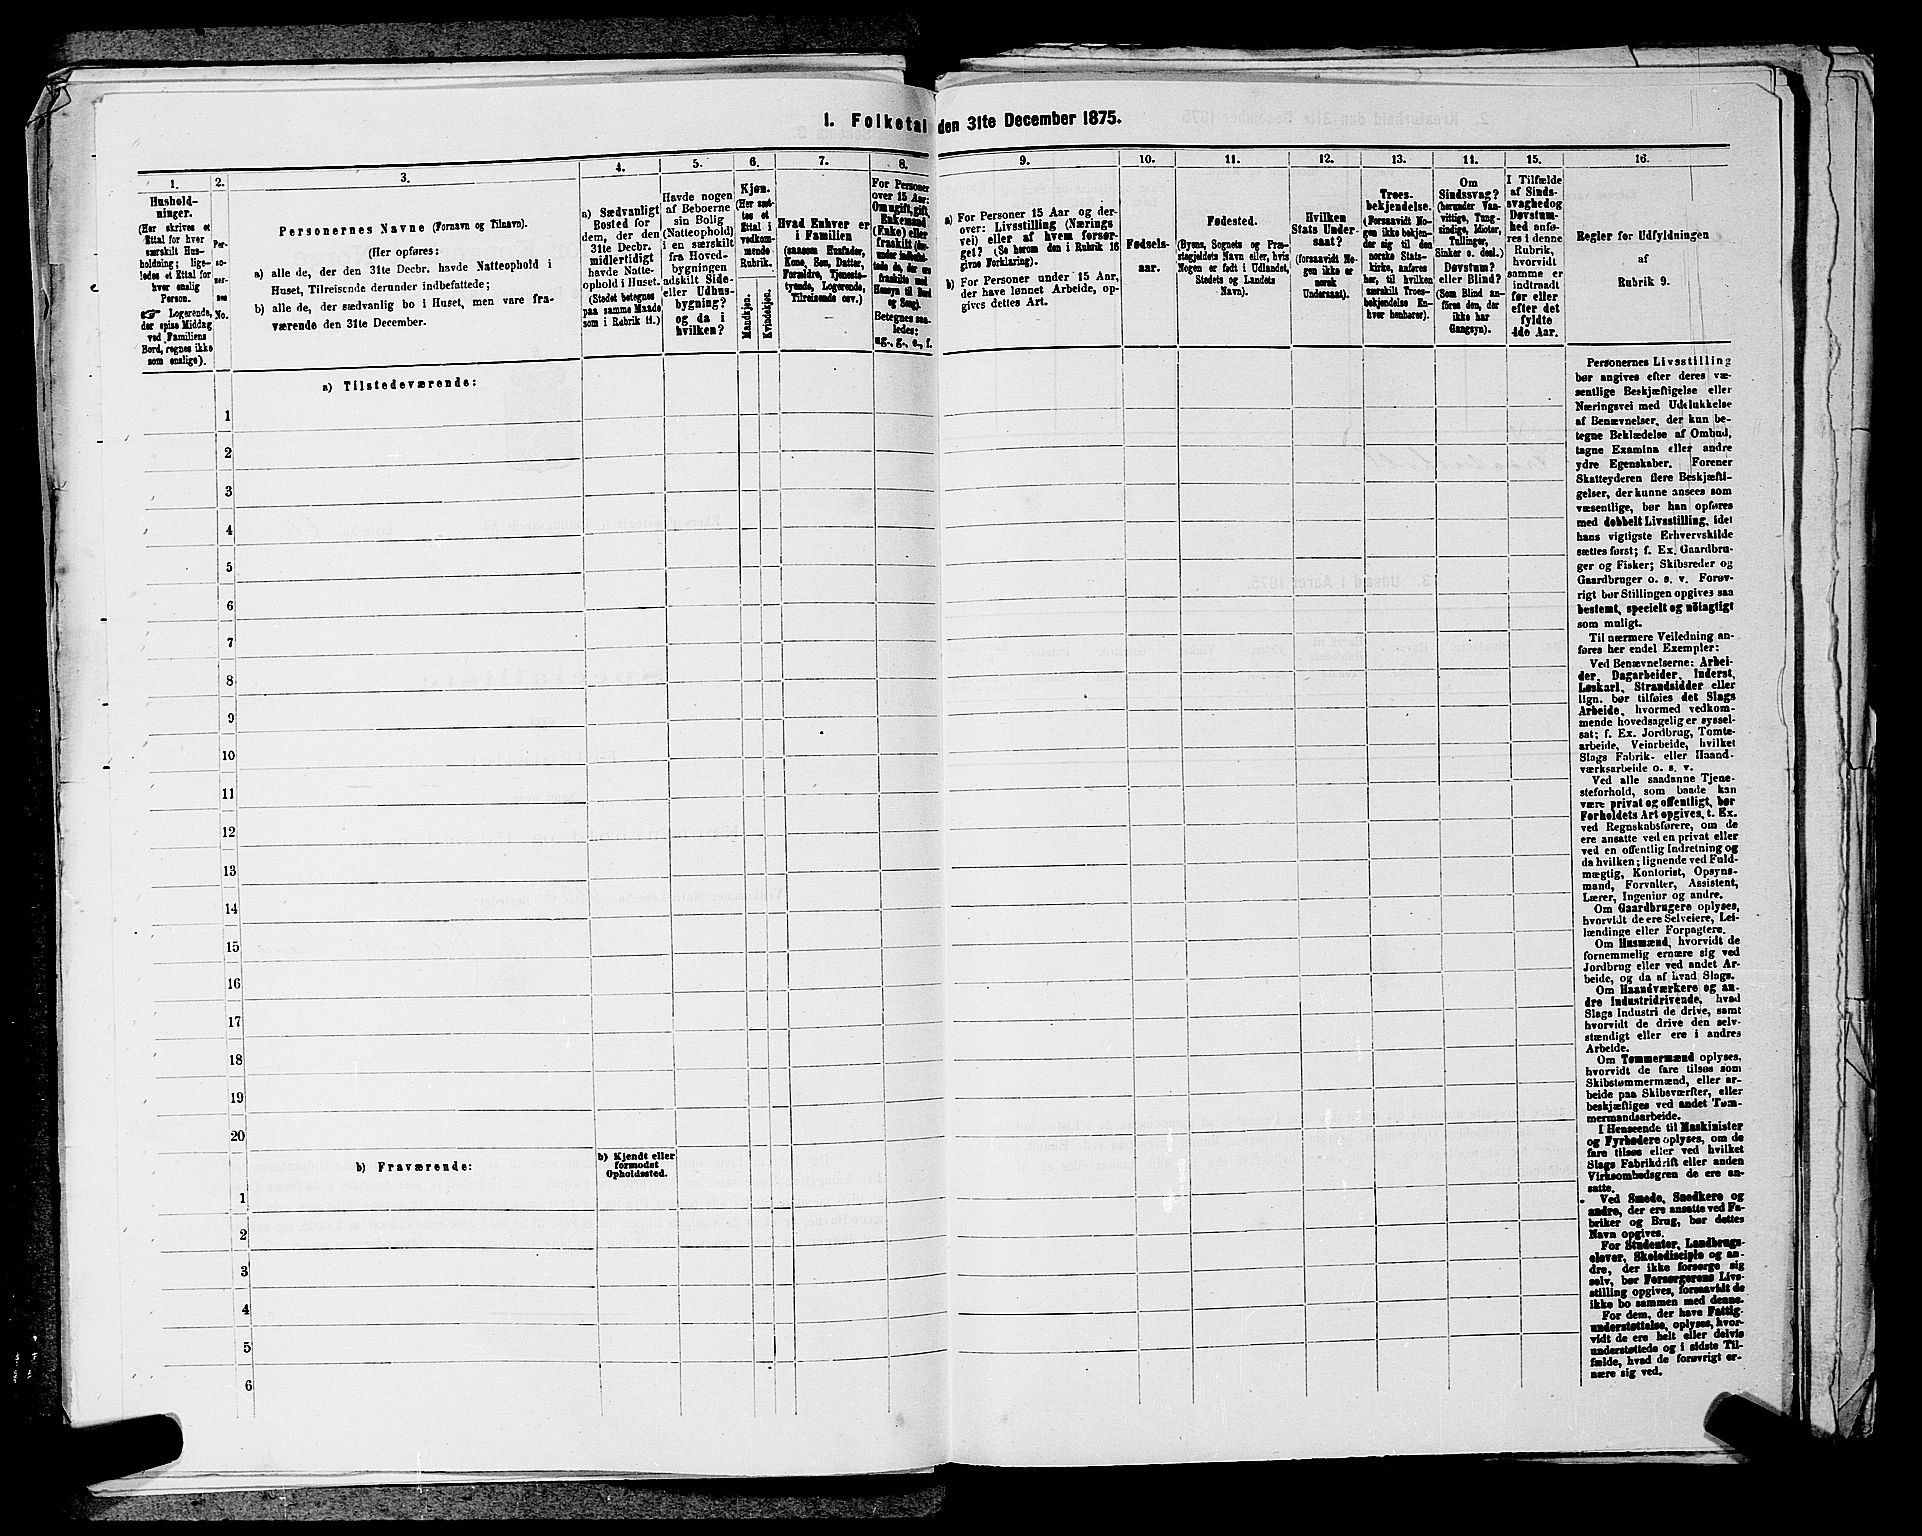 1. Folketal den 31te December 1875.
1.
Hushold-
ninger.
(Her skrives et
Ettal for hver
særskilt Hus-
holdning; lige-
ledes et Ettal for
hver enslig
Person.
☞ Logerende,
der spise Middag
ved Familiens
Bord, regnes ikke
som enslige).
2.
Per-
so-
ner-
nes
No.
3.
Personernes Navne (Fornavn og Tilnavn).
(Her opføres:
a) alle de, der den 31te Decbr. havde Natteophold i
Huset, Tilreisende derunder indbefattede;
b) alle de, der sædvanlig bo i Huset, men vare fra-
værende den 31te December.
4.
a) Sædvanligt
Bosted for
dem, der den
31te Decbr.
midlertidigt
havde Natte-
ophold i Huset.
(Stedet betegnes
paa samme Maade
som i Rubrik 11.)
5.
Havde nogen
af Beboerne
sin Bolig
(Natteophold)
i en særskilt
fra Hoved-
bygningen
adskilt Side-
eller Udhus-
bygning?
og da i
hvilken?
6.
Kjøn.
(Her sæt-
tes et
Ettal i
vedkom-
mende
Rubrik.
Mandkjøn.
Kvindekjøn.
7.
Hvad Enhver er
i Familien
(saasom Husfader,
Kone, Søn, Datter,
Forældre, Tjeneste-
tyende, Logerende,
Tilreisende osv.)
8.
For Personer
over 15 Aar:
Om ugift, gift,
Enkemand
(Enke) eller
fraskilt (der-
under indbefat-
tede de, der ere
fraskilte med
Hensyn til Bord
og Seng).
Betegnes saa-
ledes:
ug., g., e., f.
9.
a) For Personer 15 Aar og der-
over: Livsstilling (Nærings
vei) eller af hvem forsør-
get? (Se herom den i Rubrik 16
givne Forklaring).
b) For Personer under 15 Aar,
der have lønnet Arbeide, op-
gives dettes Art.
10.
Fødsels-
aar.
11.
Fødested.
(Byens, Sognets og Præ-
stegjeldets Navn eller, hvis
Nogen er født i Udlandet,
Stedets og Landets
Navn).
12.
Hvilken
Stats Under-
saat?
(forsaavidt No-
gen ikke er
norsk
Undersaat).
13.
Troes-
bekjendelse.
(Forsaavidt No-
gen ikke bekjen-
der sig til den
norske Stats-
kirke, anføres
her, til hvilken
særskilt Troes-
bekjendelse En-
hver henhører).
14.
Om
Sindssvag?
(herunder Van-
vittige, Tung-
sindige, Idioter,
Tullinger,
Sinker o. desl.)
Døvstum?
eller Blind?
(Som Blind an-
føres den, der
ikke har
Gangsyn).
15.
I Tilfælde
af Sinds-
svaghed og
Døvstum-
hed anfø-
res i denne
Rubrik,
hvorvidt
samme er
indtraadt
før eller
efter det
fyldte
4de Aar.
16.
Regler for Udfyldningen
af
Rubrik 9.
a) Tilstedeværende:
1
2
3
4
5
6
7
8
9
10
11
12
13
14
15
16
17
18
19
20
b) Fraværende:
b) Kjendt eller
formodet
Opholdssted.
1
2
3
4
5
6
Personernes Livsstilling
bør angives efter deres væ-
sentlige Beskjæftigelse eller
Næringsvei med Udelukkelse
af Benævnelser, der kun be-
tegne Beklædelse af Ombud,
tagne Examina eller andre
ydre Egenskaber. Forener
Skatteyderen flere Beskjæfti-
gelser, der kunne ansees som
væsentlige, bør han opføres
med dobbelt Livsstilling, idet
hans vigtigste Erhvervskilde
sættes først; f. Ex. Gaardbru-
ger og Fisker; Skibsreder og
Gaardbruger o. s. v. Forøv-
rigt bør Stillingen opgives saa
bestemt, specielt og nöiagtigt
som muligt.
Til nærmere Veiledning an-
føres her endel Exempler:
Ved Benævnelserne: Arbei-
der, Dagarbeider, Inderst,
Løskarl, Strandsidder eller
lign. bør tilføies det Slags
Arbeide, hvormed vedkom-
mende hovedsagelig er syssel-
sat; f. Ex. Jordbrug, Tomte-
arbeide, Veiarbeide, hvilket
Slags Fabrik- eller Haand-
værksarbeide o. s. v.
Ved alle saadanne Tjene-
steforhold, som baade kan
være privat og offentligt, bør
Forholdets Art opgives, t. Ex.
ved Regnskabsførere, om de
ere ansatte ved en privat eller
ved en offentlig Indretning og
da hvilken; lignende ved Fuld-
mægtig, Kontorist, Opsyns-
mand, Forvalter, Assistent,
Lærer, Ingeniør og andre.
Om Gaardbrugere oplyses,
hvorvidt de ere Selveiere, Lei-
lændinge eller Forpagtere.
Om Husmænd, hvorvidt de
fornemmelig ernære sig ved
Jordbrug eller ved andet Ar-
beide, og da af hvad Slags.
Om Haandværkere og an-
dre Industridrivende, hvad
Slags Industri de drive, samt
hvorvidt de drive den selv-
stændigt eller ere i andres
Arbeide.
Om Tømmermænd oplyses,
hvorvidt de fare tilsøs som
Skibstømmermænd, eller ar-
beide paa Skibsværfter, eller
beskjæftiges ved andet Tøm-
mermandsarbeide.
I Henseende til Maskinister
og Fyrbødere oplyses, om de
fare tilsøs eller ved hvilket
Slags Fabrikdrift eller anden
Virksombødsgren de ere an-
satte.
Ved Smede, Snedkere og
andre, der ere ansatte ved Fa-
briker og Brug, bør dettes
Navn opgives.
For Studenter, Landbrugs-
elever, Skoledisciple og an-
dre, der ikke forsørge sig
selv, bør Forsørgerens Livs-
stilling opgives, forsaavidt de
ikke bo sammen med denne.
For dem, der have Fattig-
understøttelse, oplyses, hvor-
vidt de ere helt eller delvis
understøttede og i sidste Til-
fælde, hvad de forøvrigt er-
nære sig ved.